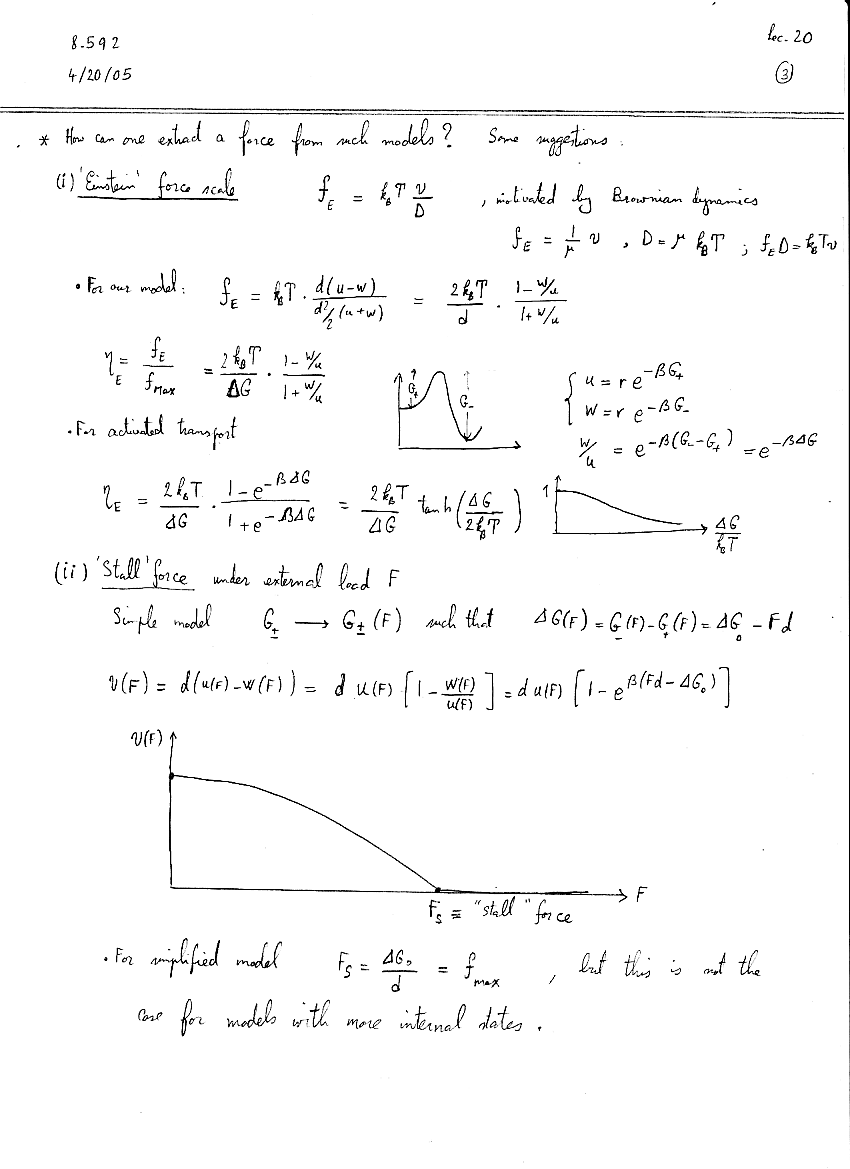 8.592
lec. 20
4/20/05
③
* How can one extract a force from such models? Some suggestions.
(i) 'Einstein' force scale f_E = k_B T v/D , motivated by Brownian dynamics
f_E = 1/μ v , D = μ k_B T ; f_E D = k_B T v
• For our model: f_E = k_B T · d(u-w) / d²/2 (u+w) = 2k_B T/d · (1 - w/u)/(1 + w/u)
η_E = f_E/f_max = 2k_B T/ΔG · (1 - w/u)/(1 + w/u)
G_+ G_-
u = r e^{-βG_+}
w = r e^{-βG_-}
w/u = e^{-β(G_- - G_+)} = e^{-βΔG}
• For activated transport
η_E = 2k_B T/ΔG · (1 - e^{-βΔG})/(1 + e^{-βΔG}) = 2k_B T/ΔG tanh(ΔG/2k_B T)
1 ΔG/k_B T
(ii) 'Stall' force under external load F
Simple model G_± → G_±(F) such that ΔG(F) = G_-(F) - G_+(F) = ΔG_0 - Fd
v(F) = d(u(F) - w(F)) = d u(F) [1 - w(F)/u(F)] = d u(F) [1 - e^{β(Fd - ΔG_0)}]
v(F)
F
F_S ≡ "stall" force
• For simplified model F_S = ΔG_0/d = f_max , but this is not the
case for models with more internal states.